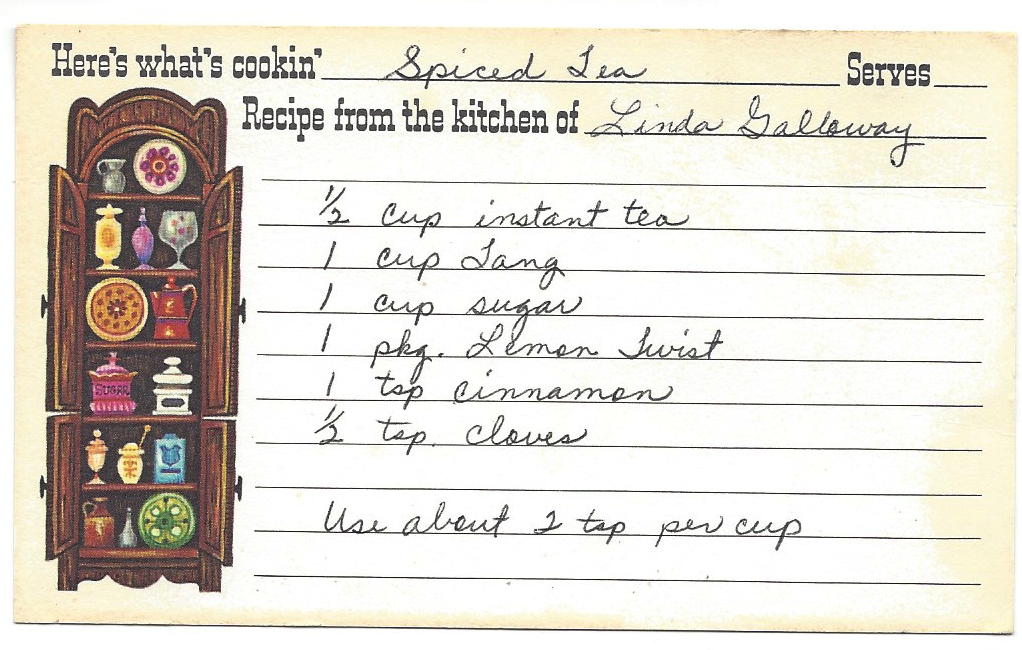 Here's what's cookin' Spiced Tea Serves
Recipe from the kitchen of Linda Galloway
½ cup instant tea
1 cup Tang
1 cup sugar
1 pkg. Lemon Twist
1 tsp cinnamon
½ tsp. cloves
SUGAR
Use about 2 tsp per cup